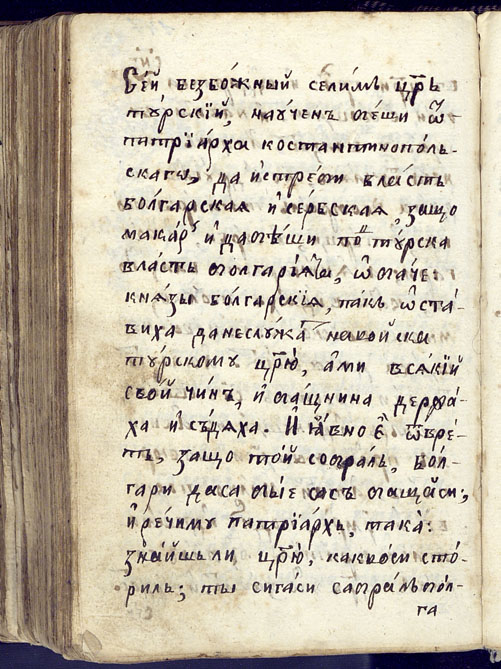 Сей безбожный селимъ цр҃ь
тꙋрскїй, наꙋченъ
патрїарха костантинополь-
скагѡ, да истреби власть
болгарская и сербская, защо
макар и даеши под тꙋрска
власть ѡбаче
князы болгарскїя, пакъ ѡста-
виха да неслꙋжа на войска
тꙋрскомꙋ цр҃ю, ами всякїй
свой чинъ, и бащнина держа-
ха и съдяха. И явно є҆ ѿвре-
тъ, защо той собралъ, бол-
гари да са бые съсъ
и речимꙋ патрїархъ, така:
знайшьли, цр҃ю, каквоси сто-
рилъ; ты сигаси собралъ бол-
га